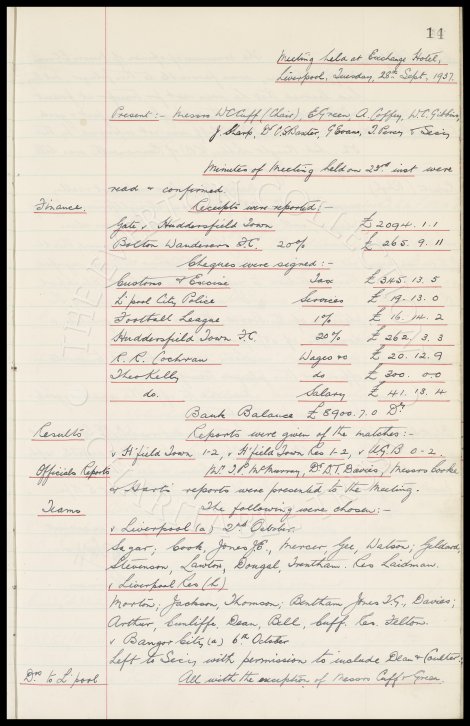 14
Meeting held at Exchange Hotel,
Liverpool, Tuesday, 28th Sept, 1937.
Present:- Messrs W.C. Cuff (Chair), E. Green, A. Coffey, W.C. Gibbins,
J. Sharp, Dr C.S. Baxter, G Evans, T. Percy & Secy.
Minutes of Meeting held on 23rd inst were
read & confirmed.
Finance. Receipts were reported:-
Gate v Huddersfield Town £ 2094.1.1
Bolton Wanderers F.C. 20% £ 265.9.11
Cheques were signed:-
Customs & Excise Tax £ 345.13.5
L'pool City Police Services £ 19.13.0
Football League 1% £ 16.14.2
Huddersfield Town F.C. 20% £ 262.3.3
R.R. Cochran Wages £ 20.12.9
Theo Kelly do £ 300.0.0
do. Salary £ 41.13.4
Bank Balance £8900.7.0 Dr
Results Reports were given of the matches:-
v H'field Town 1-2, v H'field Town Res 1-2, v U.G.B 0-2.
Officials Reports Mr J.P. McMurray, Dr D.T. Davies, Messrs Cooke
& Harris reports were presented to the Meeting.
Teams The following were chosen:-
v Liverpool (a) 2nd October
Sagar; Cook, Jones J.E., Mercer Gee, Watson; Geldard,
Stevenson, Lawton, Dougal, Trentham. Res Laidman.
v Liverpool Res (h)
Morton, Jackson, Thomson; Bentham Jones T.G., Davies;
Arthur Cunliffe, Dean, Bell, Cuff. Res. Felton.
v Bangor City (a) 6th October
Left to Secy, with permission to include Dean & Coulter.
Drs to L'pool All with the exception of Messrs Cuff & Green.